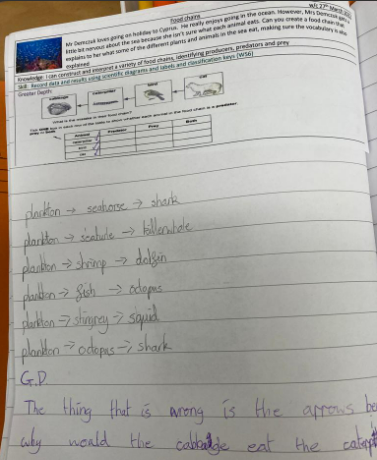 w/c 27th March
Food chains
Mr Demczuk loves going on holiday to Cyprus. He really enjoys going in the ocean. However, Mrs Demczuk gets a
little bit nervous about the sea because she isn't sure what each animal eats. Can you create a food chain that
explains to her what some of the different plants and animals in the sea eat, making sure the vocabulary is also
explained
Knowledge: I can construct and interpret a variety of food chains, identifying producers, predators and prey
Skill: Record data and results using scientific diagrams and labels and classification keys (WS6)
Greater Depth:
cabbage caterpillar cat
What is the mistake in this food chain?
Animal Predator Prey Both
plankton → seahorse → shark
plankton → seahole → killerwhale
plankton → shrimp → dolfin
plankton → fish → octopus
plankton → stingrey → squid
plankton → octopus → shark
G.D.
The thing that is wrong is the arrows be
why would the cabbadge eat the caterp